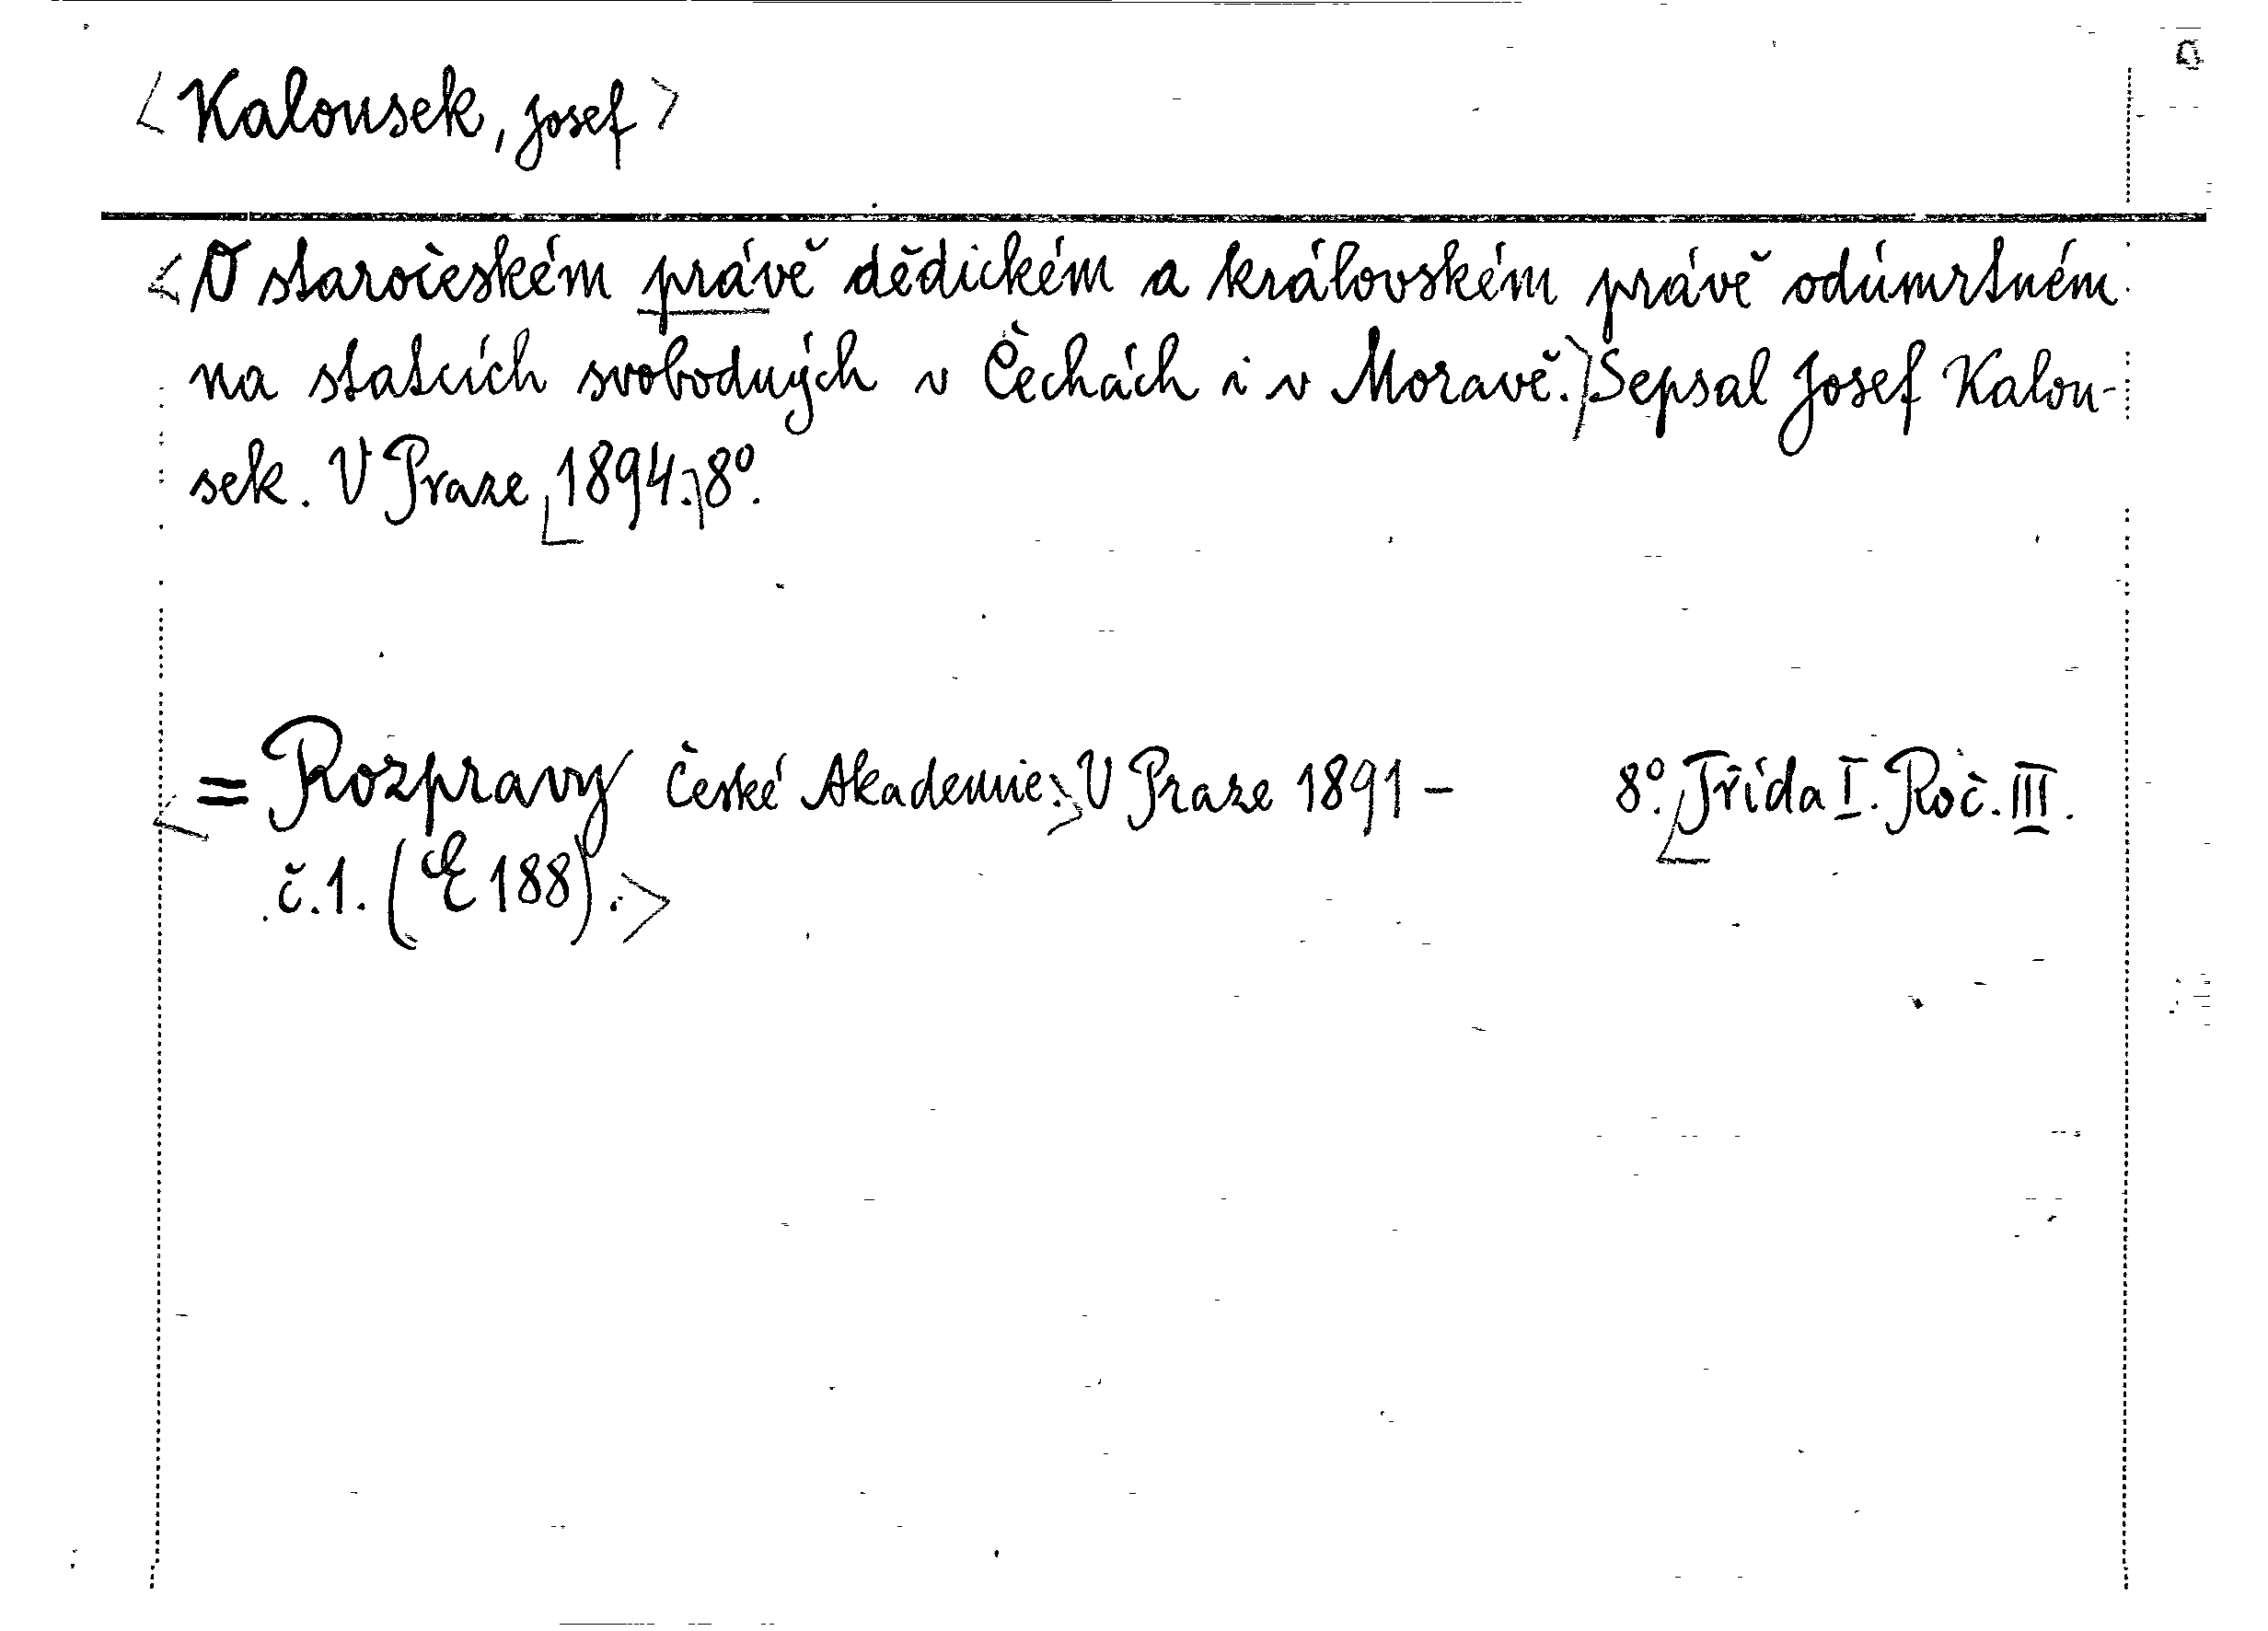 <Kalousek, Josef>
<O staročeském právě dědickém a královském právě odúmrtném
na statcích svobodných v Čechách i v Moravě.> Sepsal Josef Kalou-
sek. V Praze <1894.> 8º.
<= Rozpravy České Akademie.> V Praze 1891 - 8º. <Třída I. Roč. III.
č. 1. (E 188).>